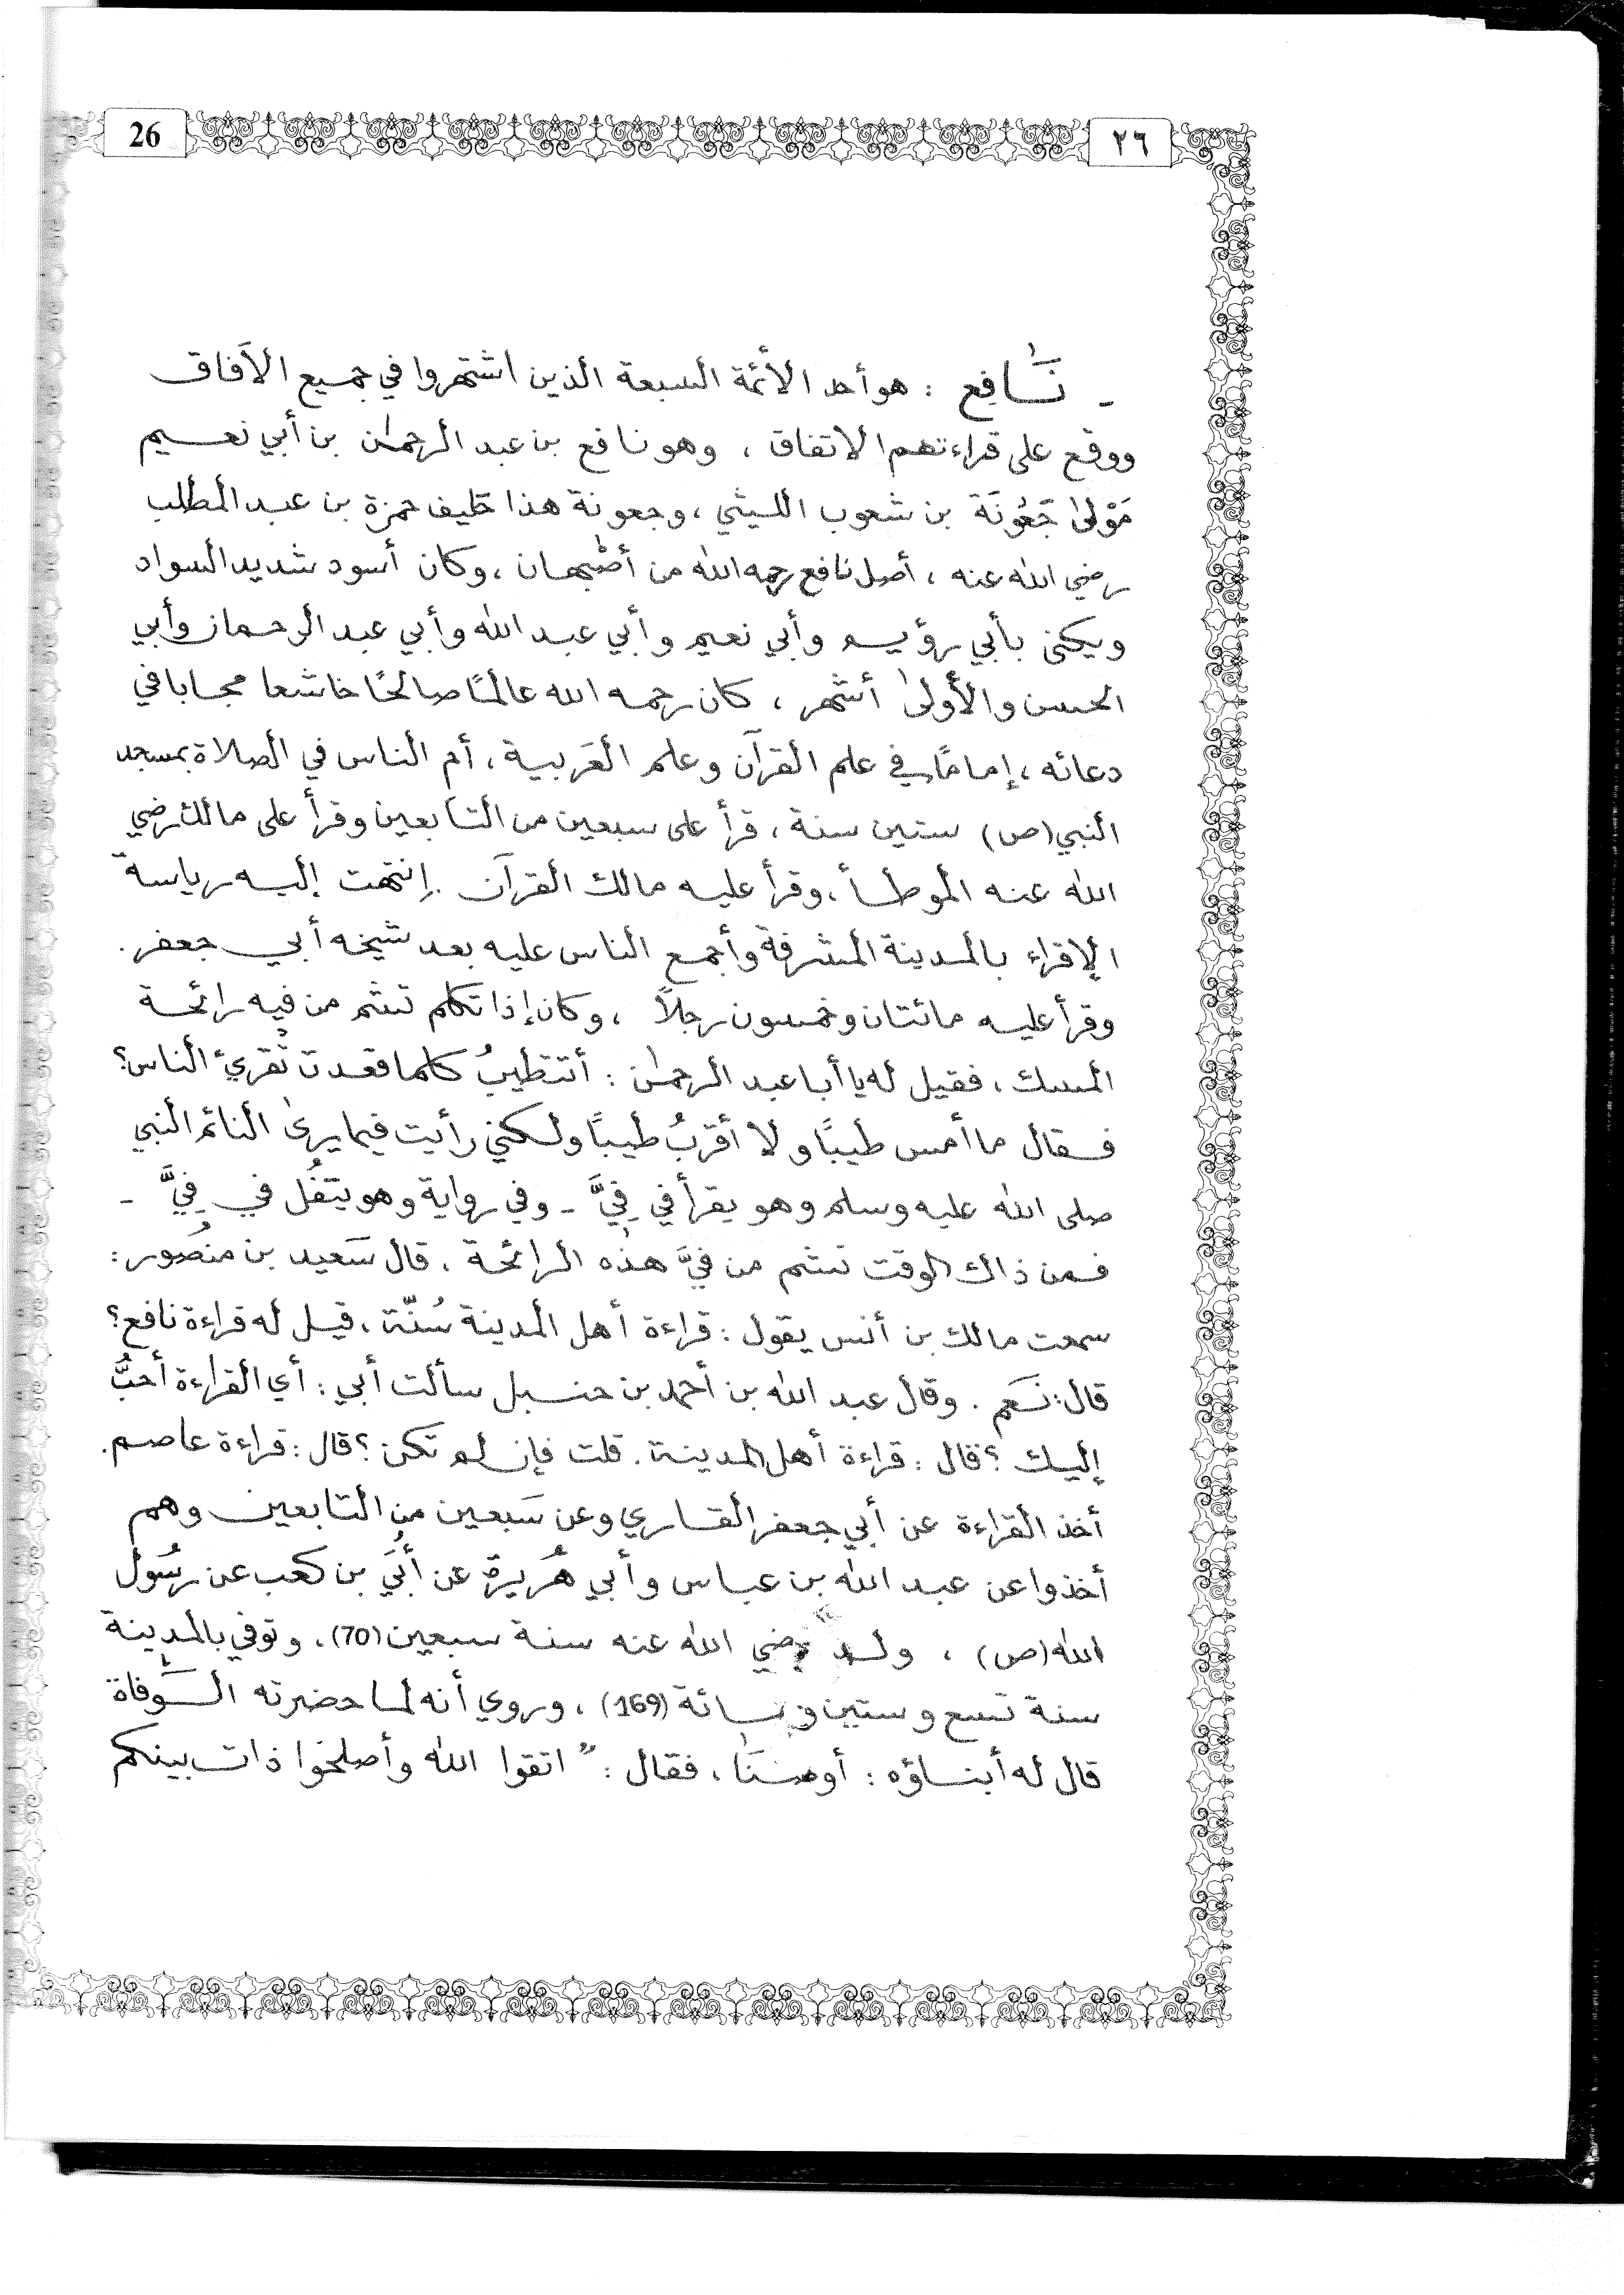 26
٢٦
- نَافِع : هو أحد الأئمة السبعة الذين اشتهروا في جميع الآفاق
ووقع على قراءتهم الاتفاق ، وهو نافع بن عبد الرحمٰن بن أبي نعيم
مَوْلىٰ جَعْوَنَة بن شعوب الليثي ، وجعونة هذا حليف حمزة بن عبد المطلب
رضي الله عنه ، أصل نافع رحمه الله من أصْبهان ، وكان أسود شديد السواد
ويكنى بأبي رؤيم وأبي نعيم وأبي عبد الله وأبي عبد الرحمان وأبي
الحسن والأُولىٰ أشهر ، كان رحمه الله عالمًا صالحًا خاشعا مجابا في
دعائه ، إمامًا في علم القرآن وعلم العَربية ، أم الناس في الصلاة بمسجد
النبي (ص) ستين سنة ، قرأ على سبعين من التابعين وقرأ على مالك رضي
الله عنه الموطأ ، وقرأ عليه مالك القرآن . إنتهت إليه رياسة
الإقراء بالمدينة المشرفة وأجمع الناس عليه بعد شيخه أبي جعفر .
وقرأ عليه مائتان وخمسون رجلاً ، وكان إذا تكلم تشم من فيه رائحة
المسك ، فقيل له يا أبا عبد الرحمٰن : أتتطيبُ كلما قعدت تُقرئ الناس ؟
فقال ما أمس طيبًا ولا أقربُ طيبًا ولكني رأيت فيما يرىٰ النائم النبي
صلى الله عليه وسلم وهو يقرأ في فِيَّ - وفي رواية وهو يتفُل في فِيَّ -
فمن ذاك الوقت تشم من فِيَّ هذه الرائحة . قال سَعيد بن منصُور :
سمعت مالك بن أنس يقول : قراءة أهل المدينة سُنّة ، قيل له قراءة نافع ؟
قال : نَعَم . وقال عبد الله بن أحمد بن حنبل سألت أبي : أي القراءة أحبُّ
إليك ؟ قال : قراءة أهل المدينة . قلت فإن لم تكن ؟ قال : قراءة عاصم .
أخذ القراءة عن أبي جعفر القاري وعن سَبعين من التابعين وهم
أخذوا عن عبد الله بن عباس وأبي هُريرة عن أُبَيّ بن كعب عن رسُول
الله (ص) ، ولد رضي الله عنه سنة سبعين (70) ، وتوفي بالمدينة
سنة تسع وستين ومائة (169) ، وروي أنه لما حضرته الوَفاة
قال له أبناؤه : أوصنَا ، فقال : " اتقوا الله وأصلحوا ذات بينكم